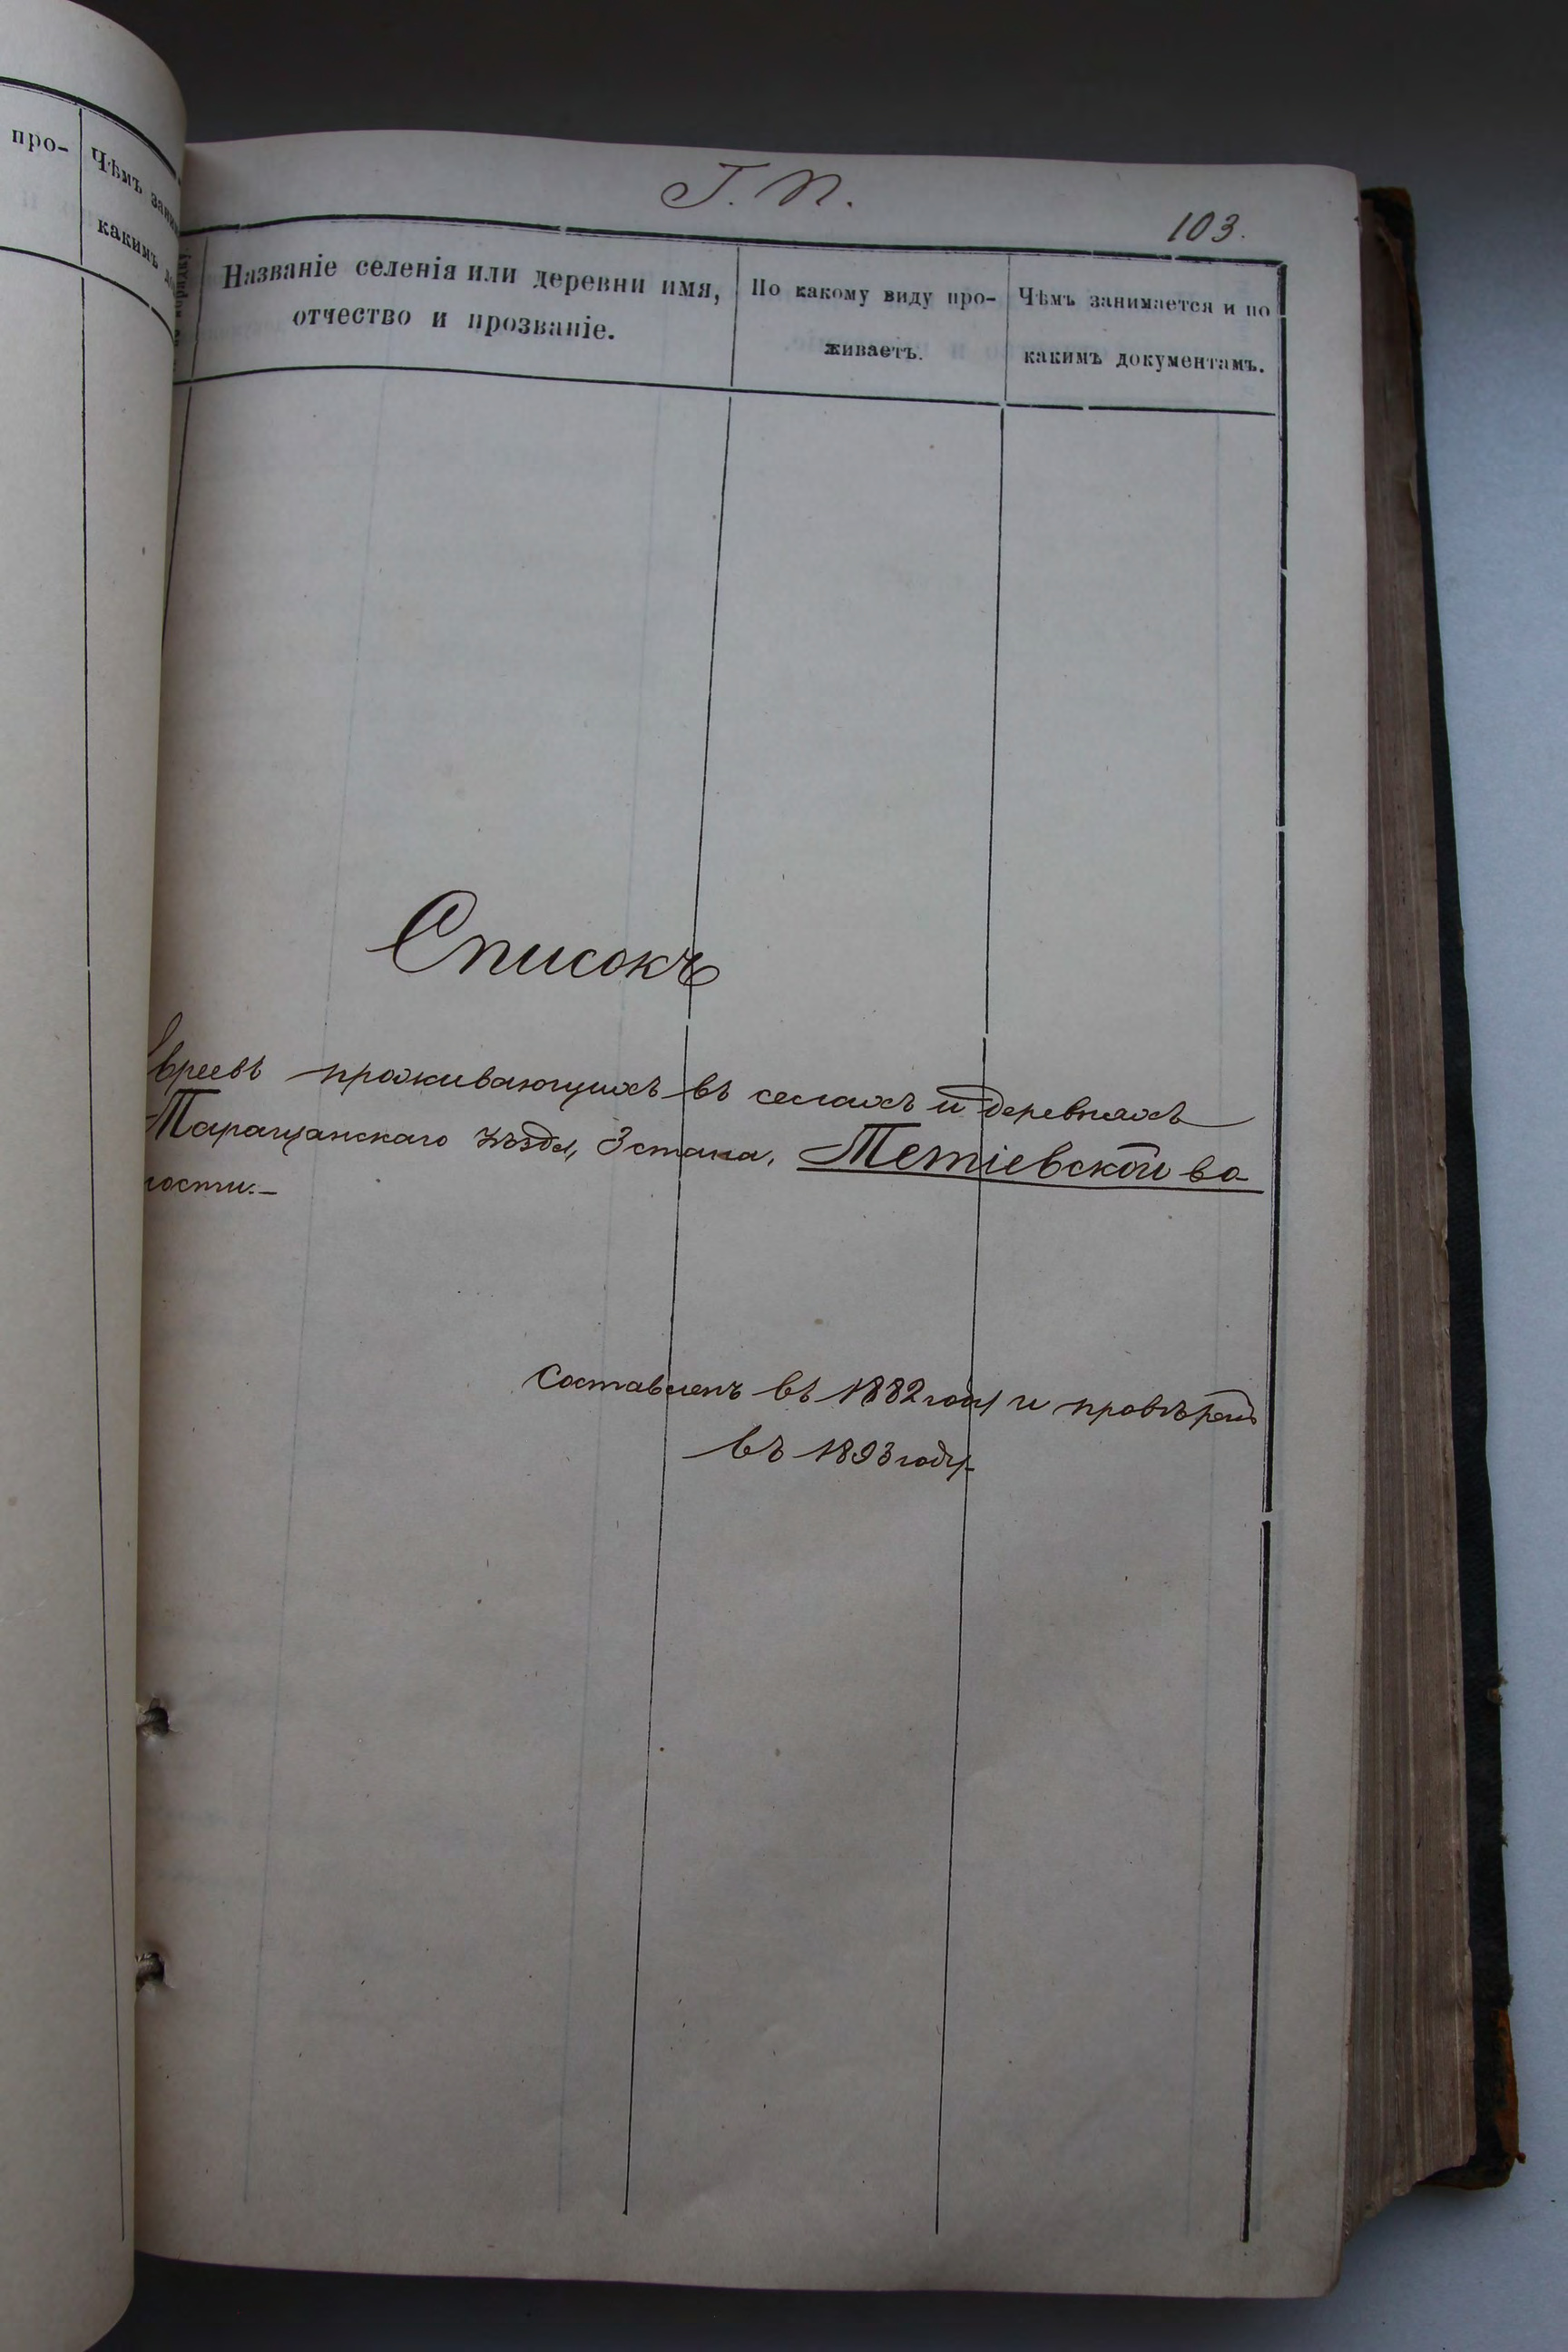 про-
Чѣмъ зани
какимъ до
Т. П.
103.
Названіе селенія или деревни имя,
отчество и прозваніе.
По какому виду про-
живаетъ.
Чѣмъ занимается и по
какимъ документамъ.
Списокъ
Евреевъ проживающихъ въ селахъ и деревняхъ
Таращанскаго уѣзда, 3 стана, Тетіевской во-
лости.–
Составленъ въ 1882 году и провѣренъ
въ 1893 году.